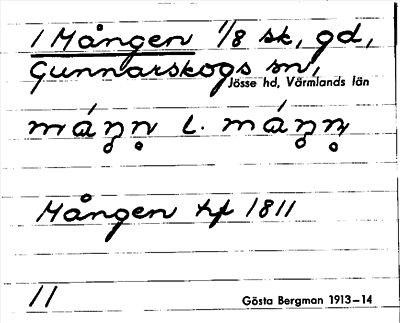 1 Mången 1/8 sk, gd,
Gunnarskogs sn,
Jösse hd, Värmlands län
máŋ̥n̥ l. máŋ̥n̥
Mången tf 1811
11
Gösta Bergman 1913–14